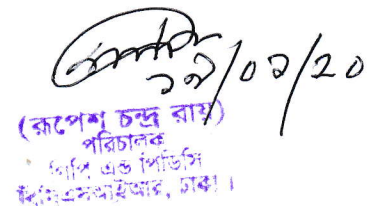 ১৯/০১/২০
(রূপেশ চন্দ্র রায়)
পরিচালক
পিপি এন্ড পিডিসি
বিসিএসআইআর, ঢাকা।